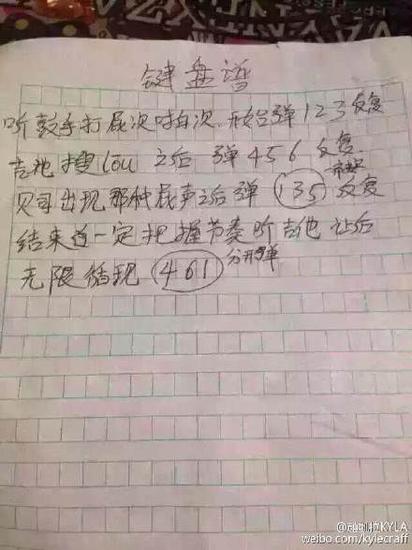 键盘谱
听鼓手打 次 次 开始弹123反复
吉他搜lou之后 弹456反复
贝司出现那种 声之后弹135 反复
结束 一定把握节奏听吉他 让后
无限循现 461 分开弹
KYLA
weibo.com/kylecraff